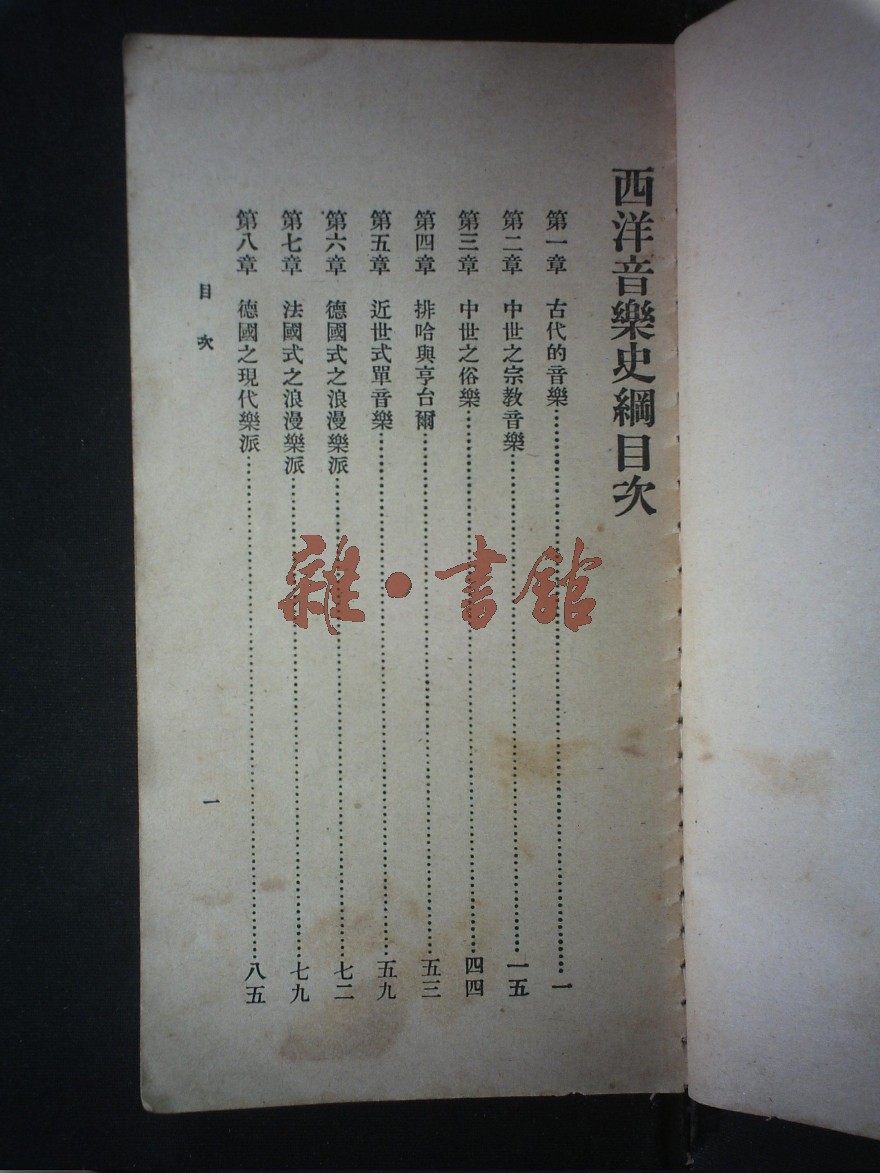 西洋音樂史綱目次
第一章 古代的音樂……………一
第二章 中世之宗教音樂……………一五
第三章 中世之俗樂……………四四
第四章 排哈與亨台爾……………五三
第五章 近世式單音樂……………五九
第六章 德國式之浪漫樂派……………七二
第七章 法國式之浪漫樂派……………七九
第八章 德國之現代樂派……………八五
目次
一
雜·書館